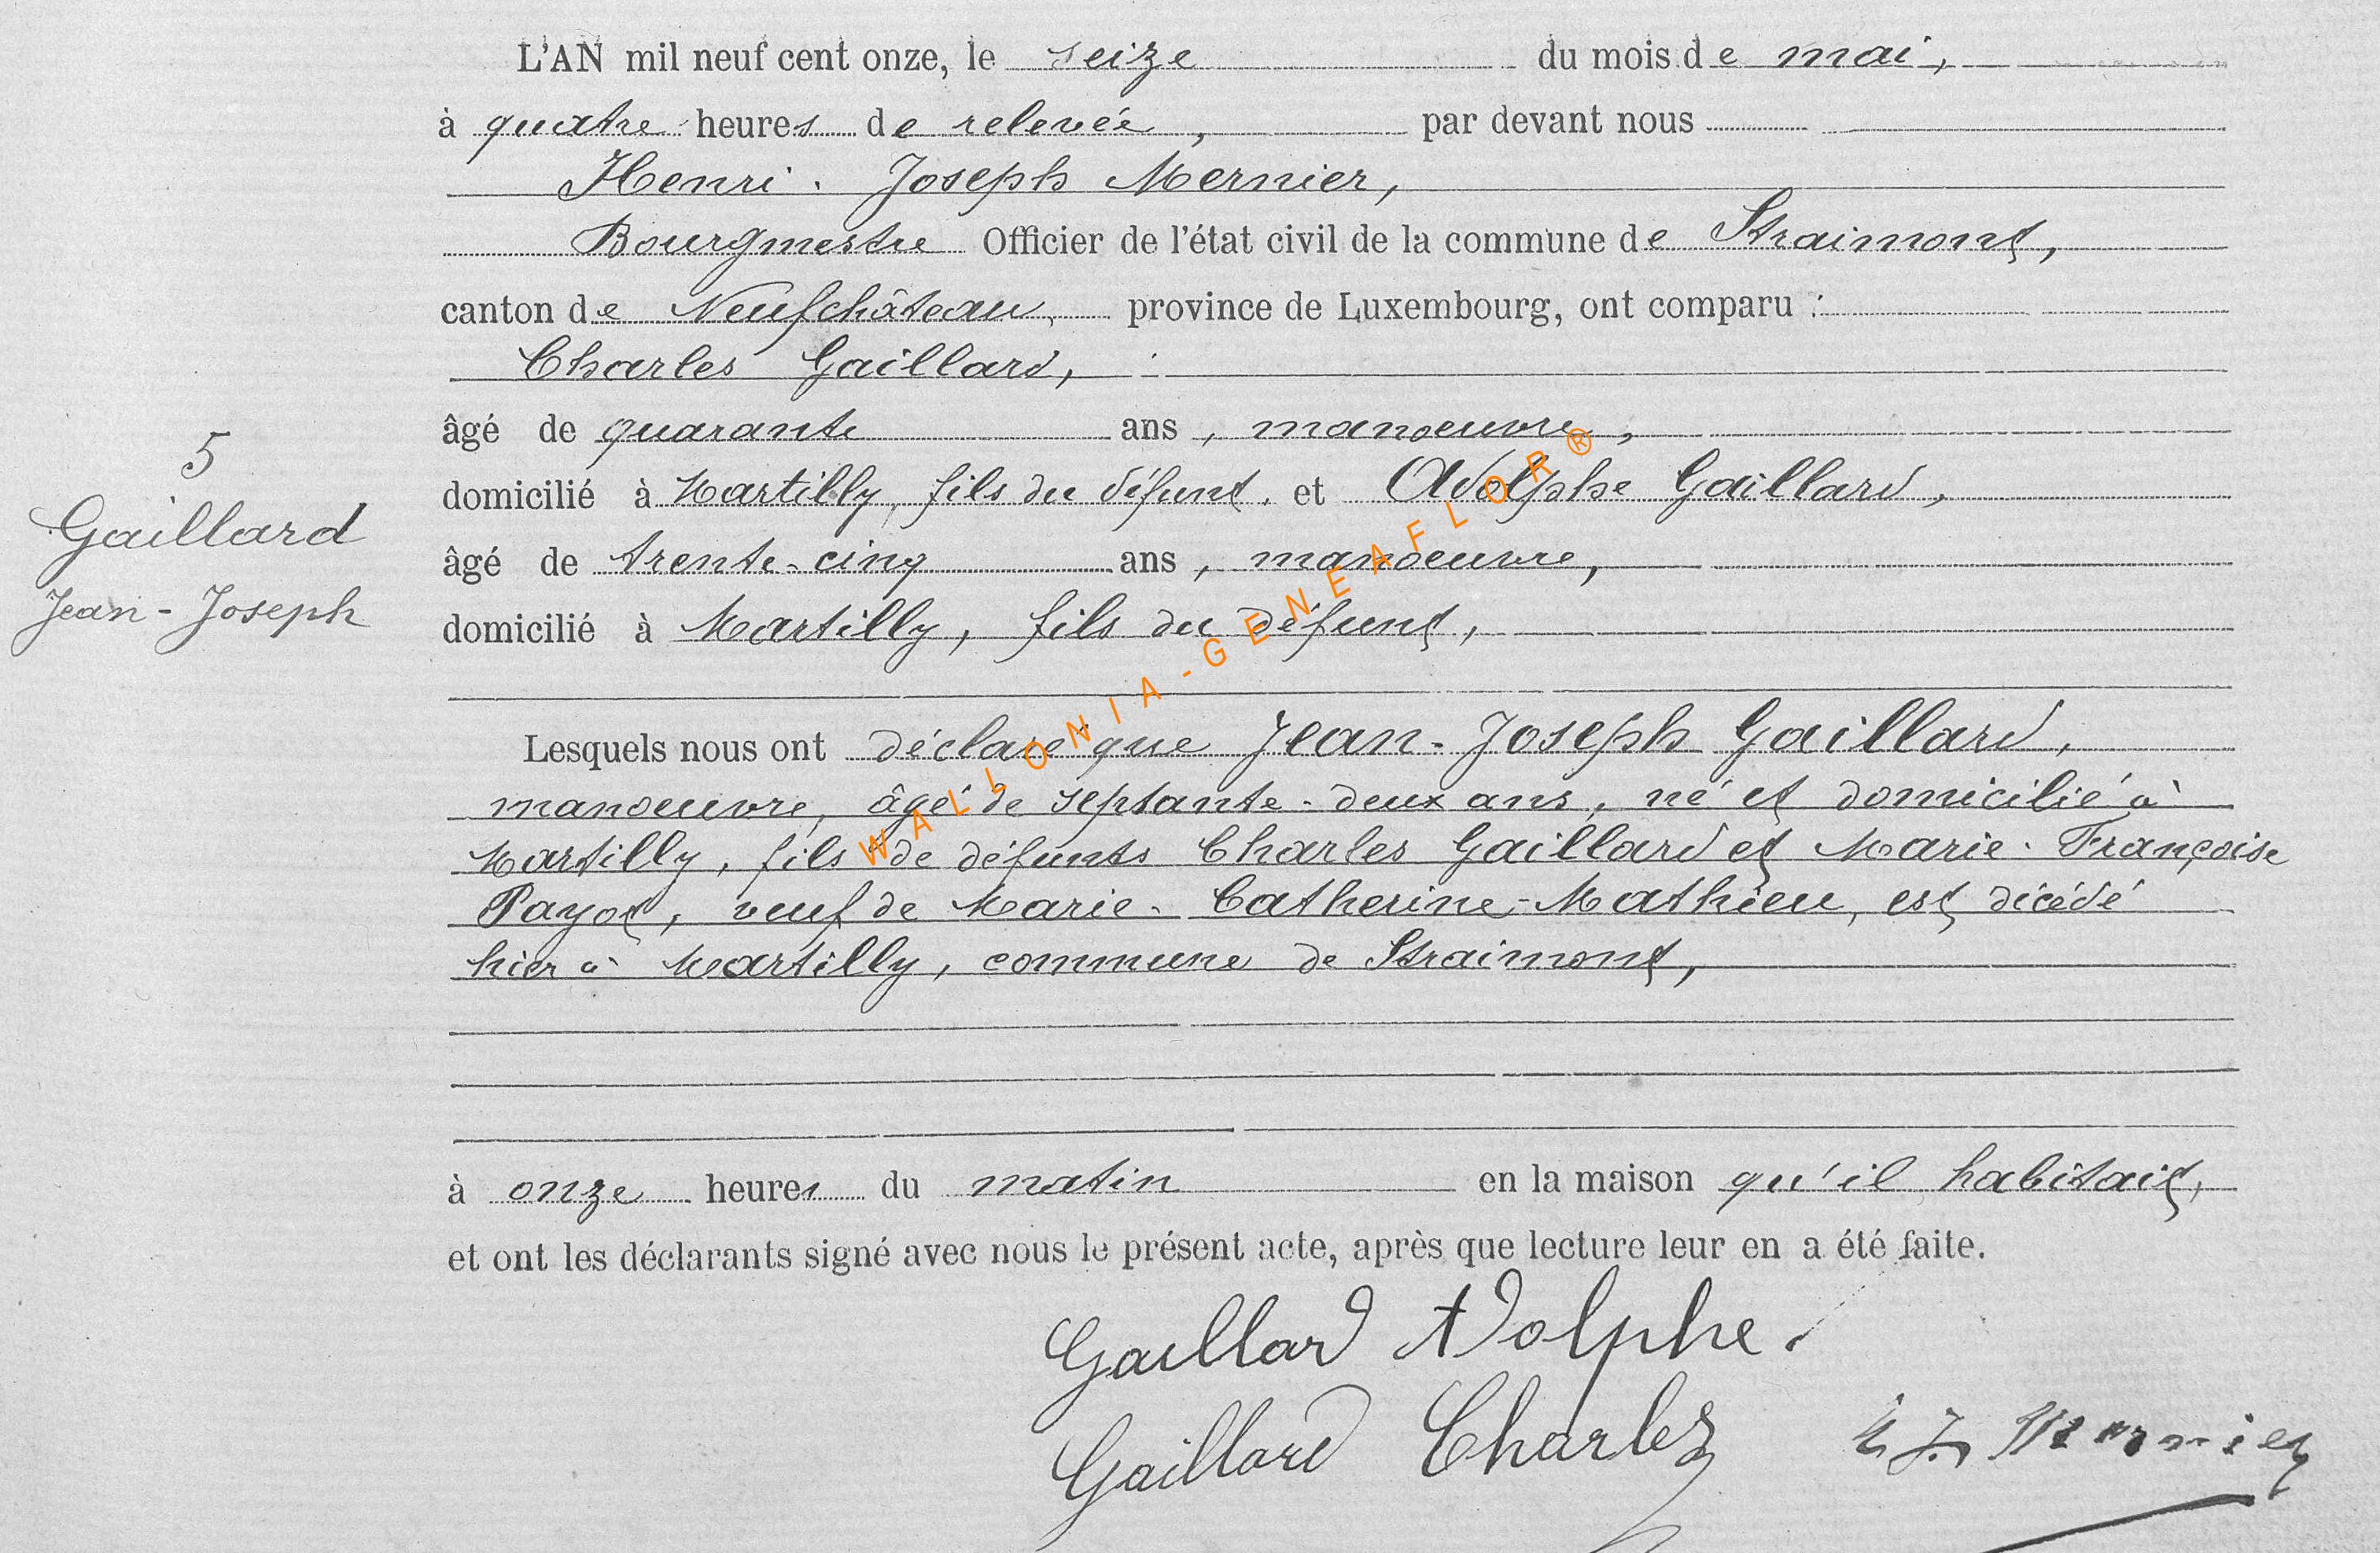 L'AN mil neuf cent onze, le seize du mois de mai,
à quatre heures de relevée, par devant nous
Henri-Joseph Mernier,
Bourgmestre Officier de l'état civil de la commune de Straimont,
canton de Neufchâteau, province de Luxembourg, ont comparu :
Charles Gaillard,
âgé de quarante ans, manoeuvre,
domicilié à Martilly, fils du défunt, et Adolphe Gaillard,
âgé de trente-cinq ans, manoeuvre,
domicilié à Martilly, fils du défunt,
5
Gaillard
Jean-Joseph
Lesquels nous ont déclaré que Jean-Joseph Gaillard,
manoeuvre, âgé de septante-deux ans, né et domicilié à
Martilly, fils de défunts Charles Gaillard et Marie-Françoise
Payot, veuf de Marie-Catherine Mathieu, est décédé
hier à Martilly, commune de Straimont,
à onze heures du matin en la maison qu'il habitait,
et ont les déclarants signé avec nous le présent acte, après que lecture leur en a été faite.
Gaillard Adolphe.
Gaillard Charles H J Mernier
WALLONIA-GENEAFLOR®